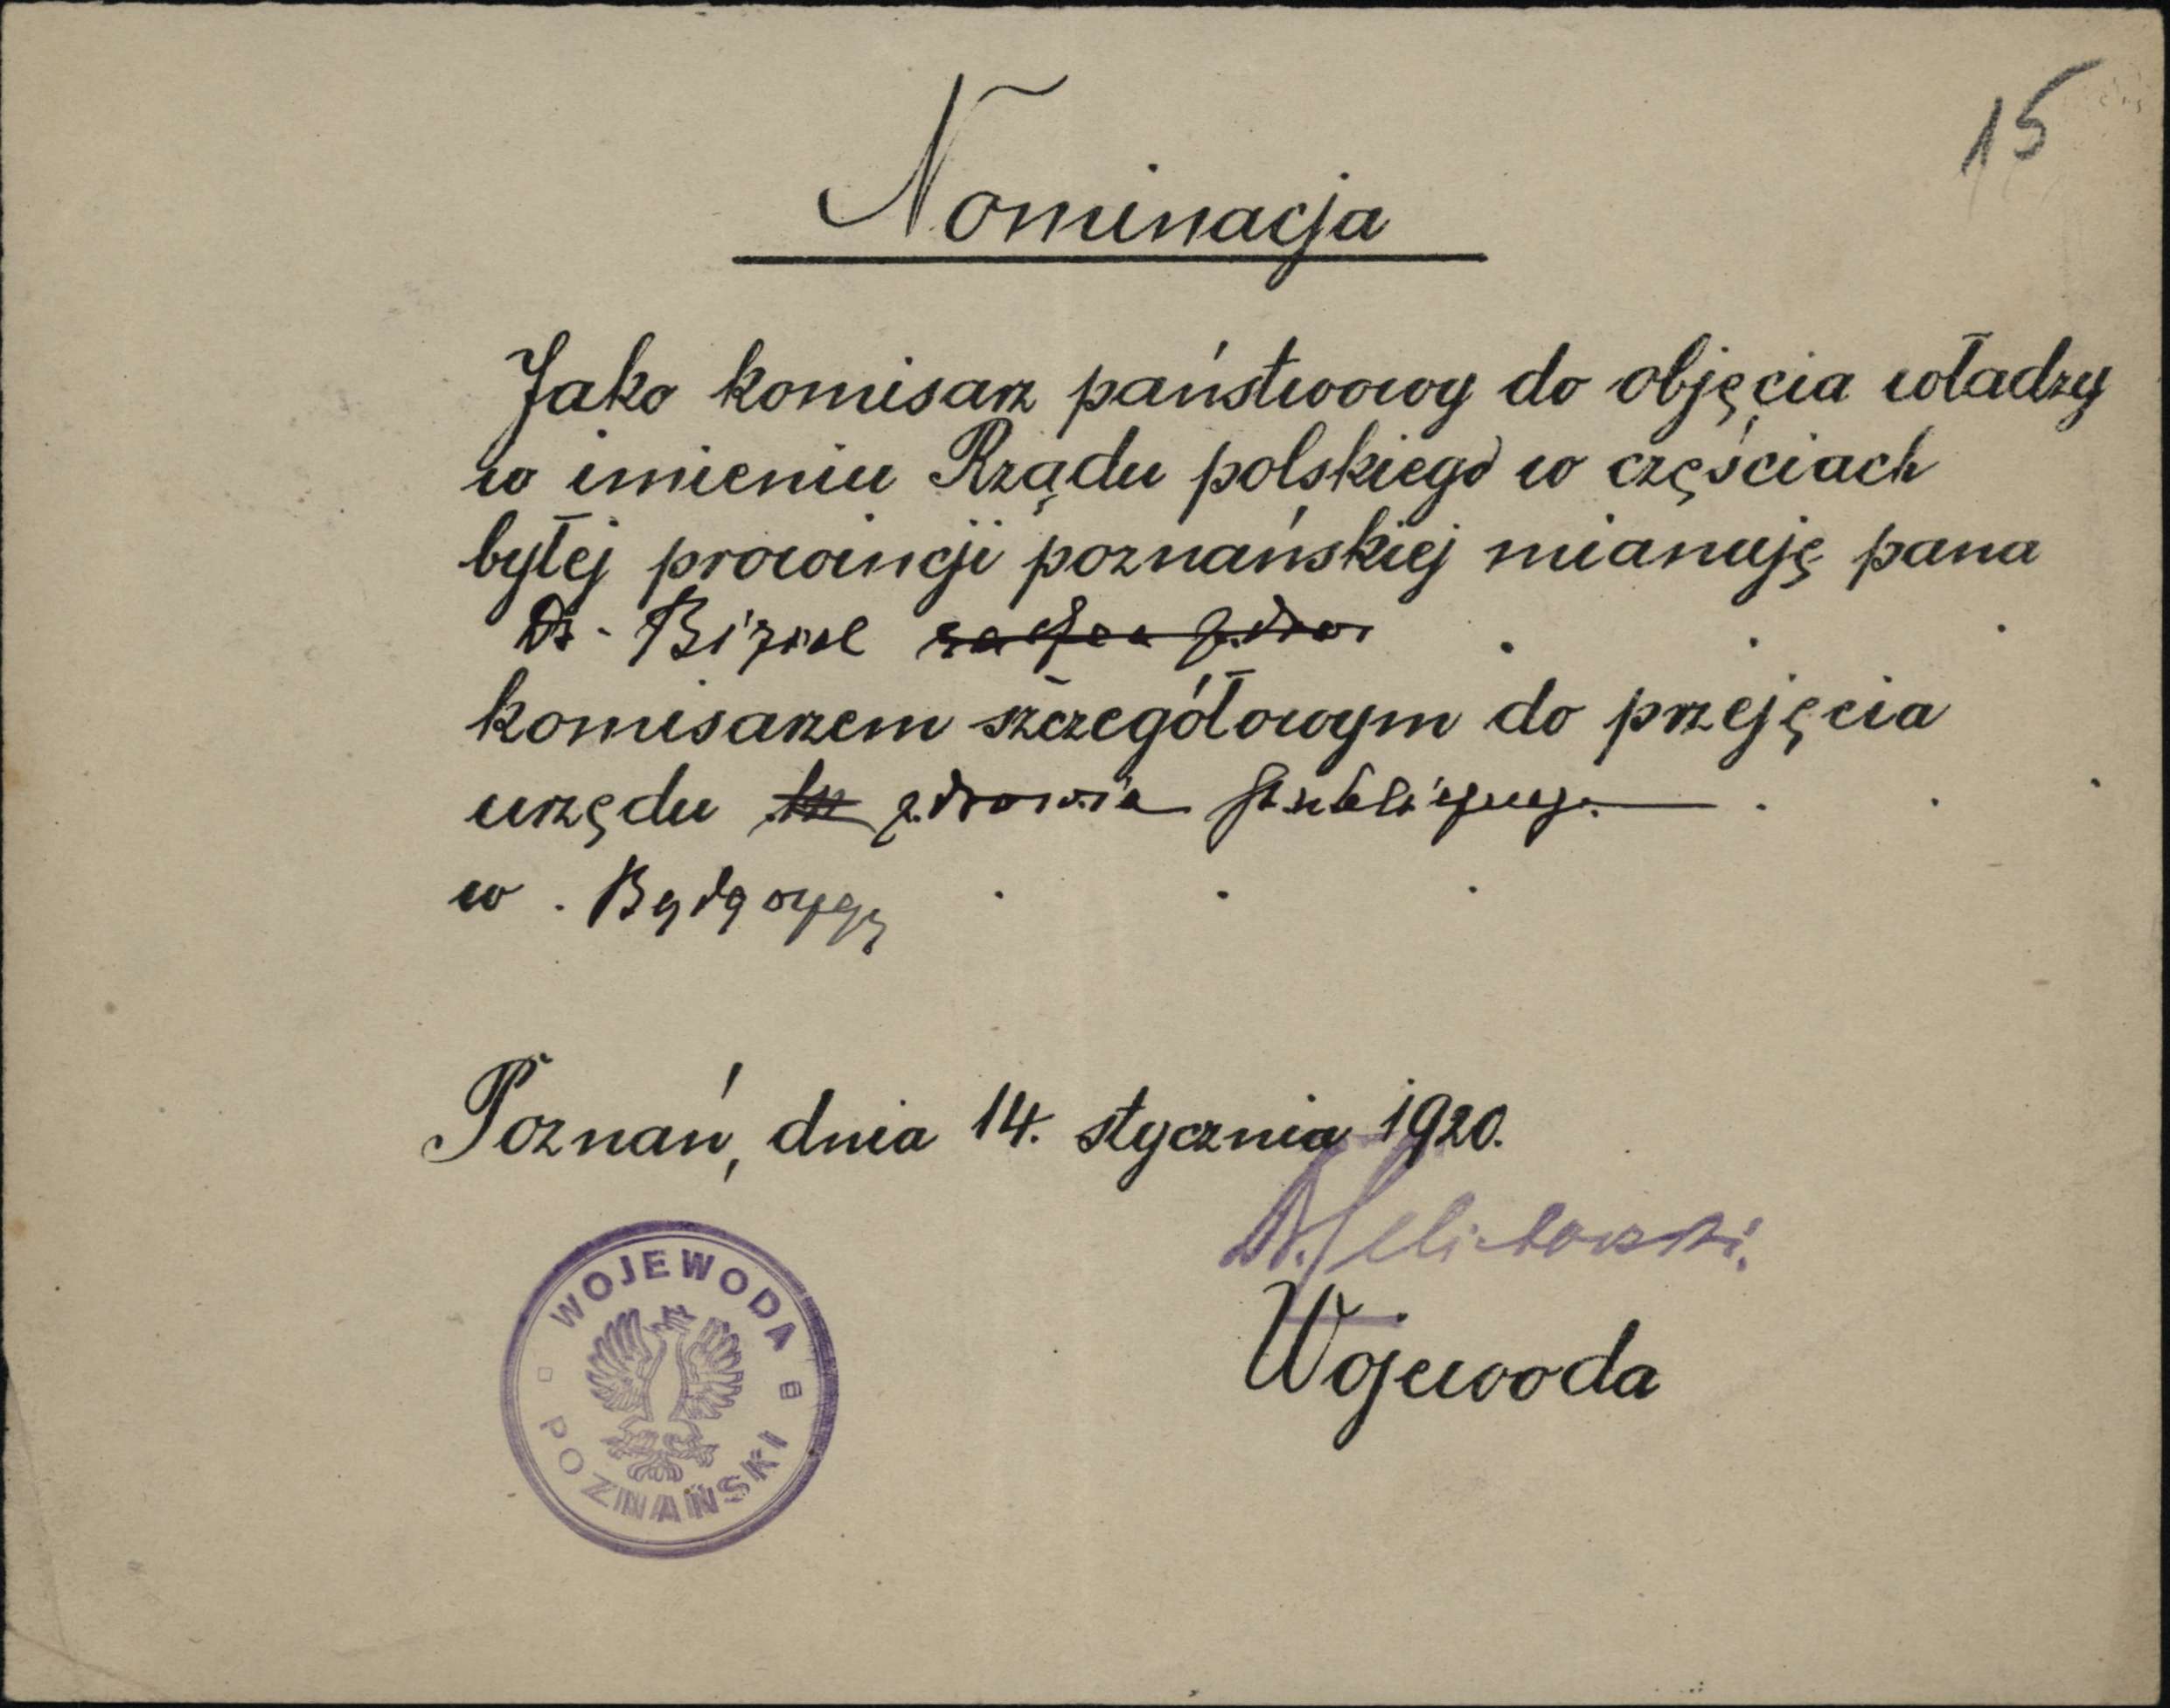 15
Nominacja
Jako komisarz państwowy do objęcia władzy
w imieniu Rządu polskiego w częściach
byłej prowincji poznańskiej mianuję pana
Dr. Biziel
komisarzem szczegółowym do przejęcia
urzędu zdrowia publicznego
w . Bydgoszczy
Poznań, dnia 14. stycznia 1920.
Wojewoda
WOJEWODA POZNAŃSKI